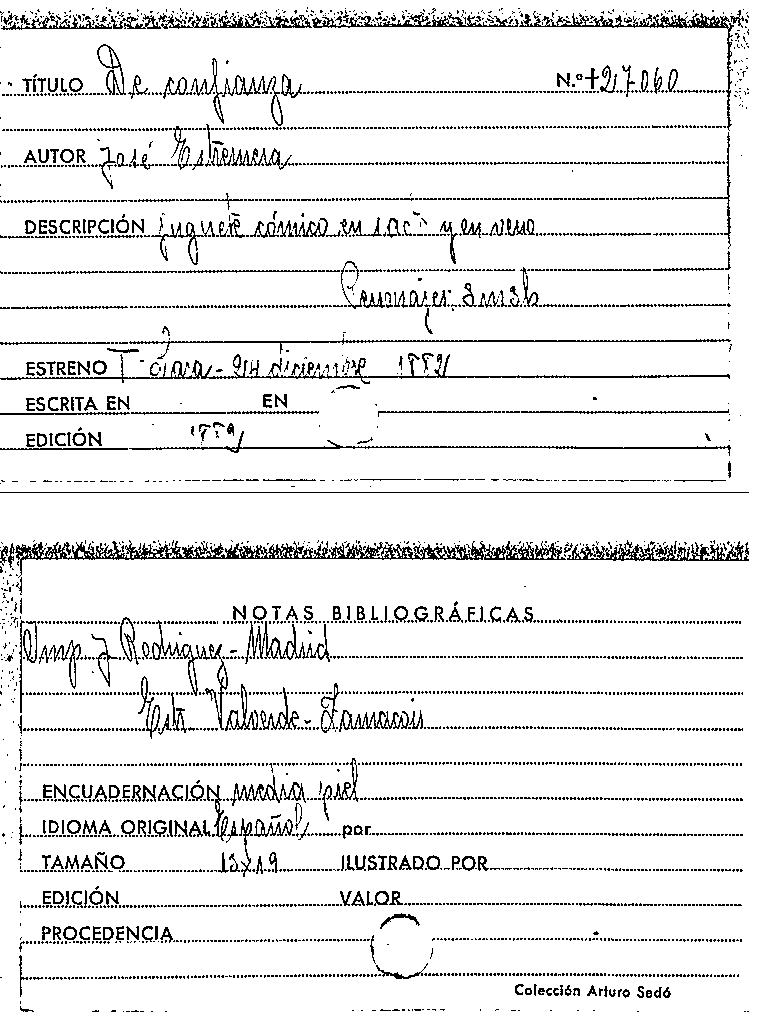 TÍTULO De confianza N.º +27060
AUTOR José Estremera
DESCRIPCIÓN juguete cómico en 1 acto y en verso
Personajes 3 m 3 h
ESTRENO T- Lara - 24 diciembre 1882
ESCRITA EN EN
EDICIÓN 1882
NOTAS BIBLIOGRÁFICAS
Imp. J Rodriguez - Madrid
Estr. Valverde - Zamacois
ENCUADERNACIÓN media piel
IDIOMA ORIGINAL Español por
TAMAÑO 13x19 ILUSTRADO POR
EDICIÓN VALOR
PROCEDENCIA
Colección Arturo Sedó